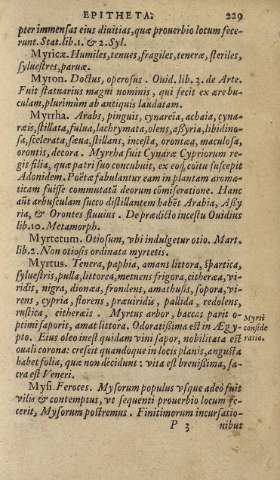 EPITHETA. 229
pter immensas eius diuitias, quæ prouerbio locum fece-
runt. Stat. lib. 1. & 2. Syl.
Myricæ. Humiles, tenues, fragiles, teneræ, steriles,
syluestres, paruæ.
Myron. Doctus, operosus. Ouid. lib. 3. de Arte.
Fuit statuarius magni nominis, qui fecit ex ære bu-
culam, plurimùm ab antiquis laudatam.
Myrrha. Arabs, pinguis, cynareia, achaia, cyna-
ræis, stillata, fulua, lachrymata, olens, assyria, libidino-
sa, scelerata, sæua, stillans, incesta, orontæa, maculosa,
orontis, decora. Myrrha fuit Cynaræ Cypriorum re-
gis filia, quæ patri suo concubuit, ex eoq́; coitu suscepit
Adonidem. Poëtæ fabulantur eam in plantam aroma-
ticam fuisse commutatã deorum cõmiseratione. Hanc
aũt arbusculam succo distillantem habẽt Arabia, Assy
ria, & Orontes fluuius. De prædicto incestu Ouidius
lib. 10. Metamorph.
Myrtetum. Otiosum, vbi indulgetur otio. Mart.
lib. 2. Non otiosis ordinata myrtetis.
Myrtus. Tenera, paphia, amans littora, spartica,
syluestris, pulla, littorea, metuens frigora, cithereæa, vi-
ridis, nigra, dionæa, frondens, amathusis, sopora, vi-
rens, cypria, florens, præuiridis, pallida, redolens,
rustica, eithereïs. Myrtus arbor, baccas parit o-
ptimi saporis, amat littora. Odoratissima est in Ægy-
pto. Eius oleo inest quidam vini sapor, nobilitata est
ouali corona: crescit quandoque in locis planis, angusta
habet folia, quæ non decidunt: vita est breuissima, sa-
cra est Veneri.
Myrti
conside
ratio.
Mysi. Feroces. Mysorum populus vsque adeò fuit
vilis & contemptus, vt sequenti prouerbio locum fe-
cerit, Mysorum postremus. Finitimorum incursatio-
P 3 nibus